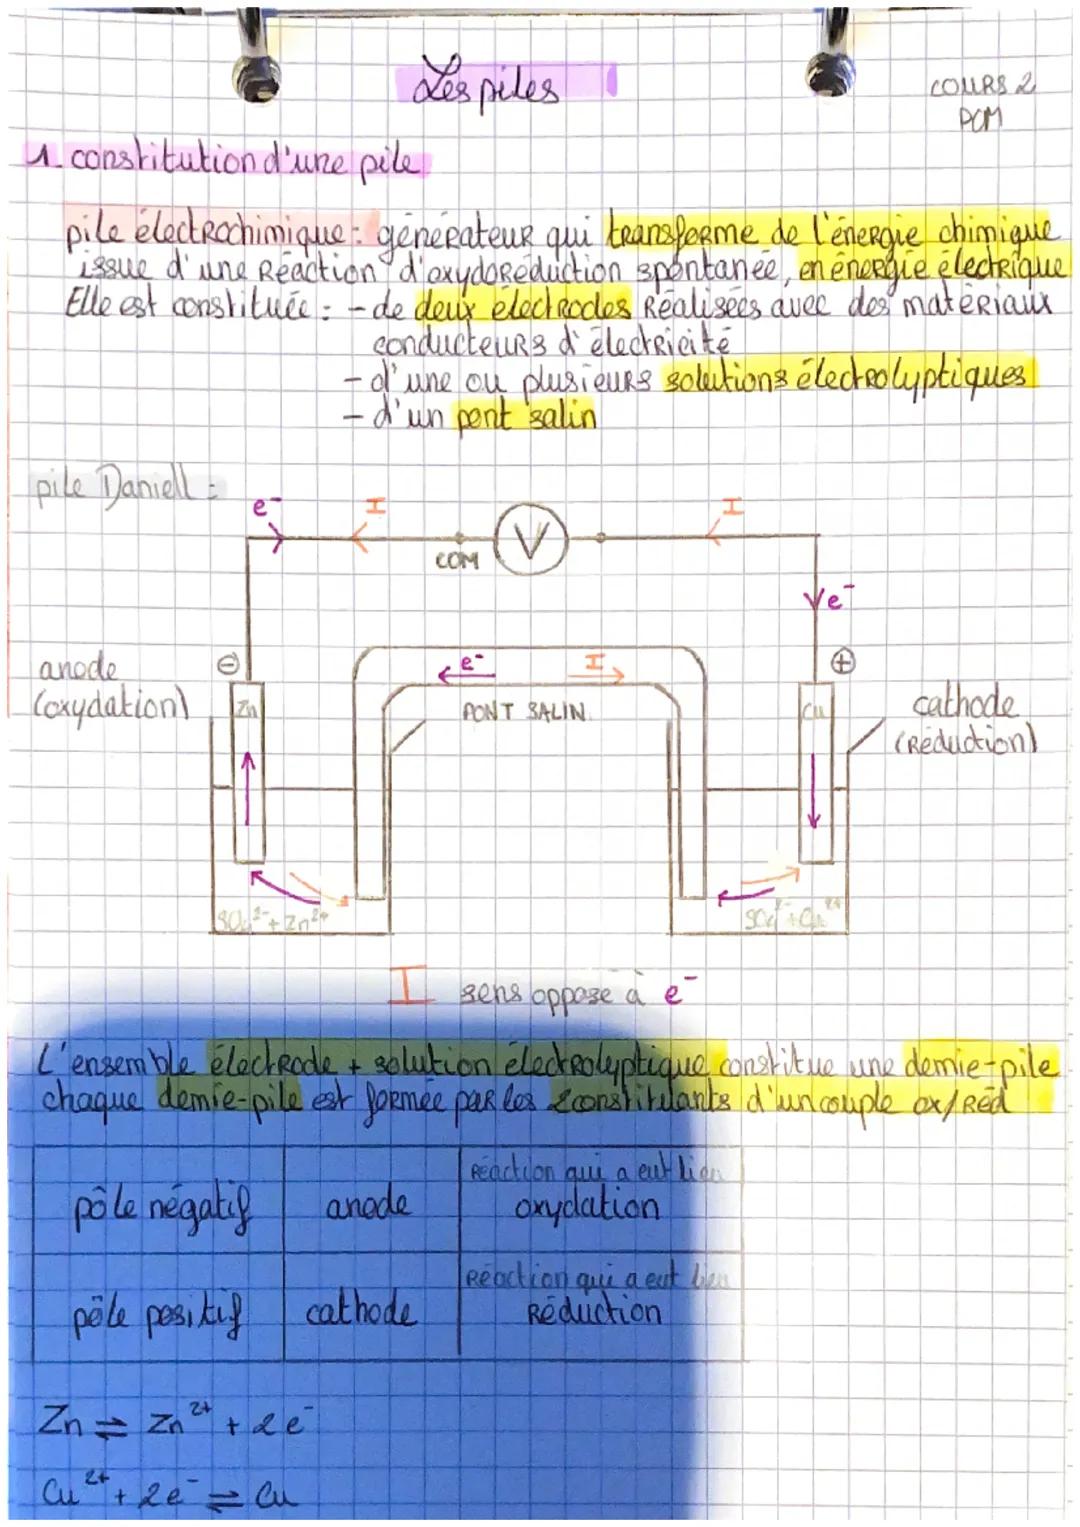 Les piles
COURS 2
PCM
1_ constitution d'une pile
pile électrochimique : générateur qui transforme de l'énergie chimique
issue d'une Réaction d'oxydoréduction spontanée, en énergie électrique
Elle est constituée : - de deux électrodes Réalisées avec des matériaux
conducteurs d'électricité
- d'une ou plusieurs solutions électrolyptiques
- d'un pont salin
pile Daniell :
e⁻ I I
COM V
e⁻
anode ⊖ e⁻ I ⊕
(oxydation) Zn PONT SALIN Cu cathode
(Réduction)
SO₄²⁻ + Zn²⁺ SO₄²⁻ + Cu²⁺
I sens opposé à e⁻
L'ensemble électrode + solution électrolyptique constitue une demie-pile
chaque demie-pile est formée par les 2 constitutants d'un couple ox/Réd
pôle négatif anode Réaction qui a eut lieu
oxydation
pôle positif cathode Réaction qui a eut lieu
Réduction
Zn ⇌ Zn²⁺ + 2e⁻
Cu²⁺ + 2e⁻ ⇌ Cu